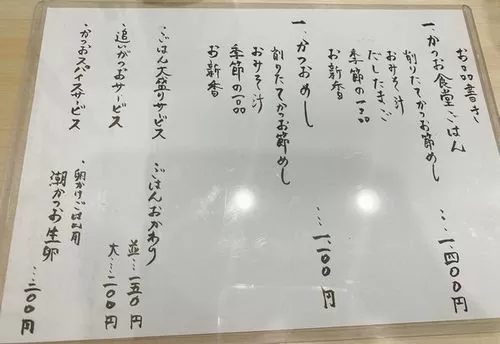 お品書き
一、かつお食堂ごはん …一、四〇〇円
削りたてかつお節めし
おみそ汁
だしたまご
季節の一品
お新香
一、かつおめし …一、一〇〇円
削りたてかつお節めし
おみそ汁
季節の一品
お新香
・ごはん大盛りサービス
・追いがつおサービス
・かつおスパイスサービス
・ごはんおかわり
並…一五〇円
大…二〇〇円
・卵かけごはん用
潮かつお生卵
…二〇〇円